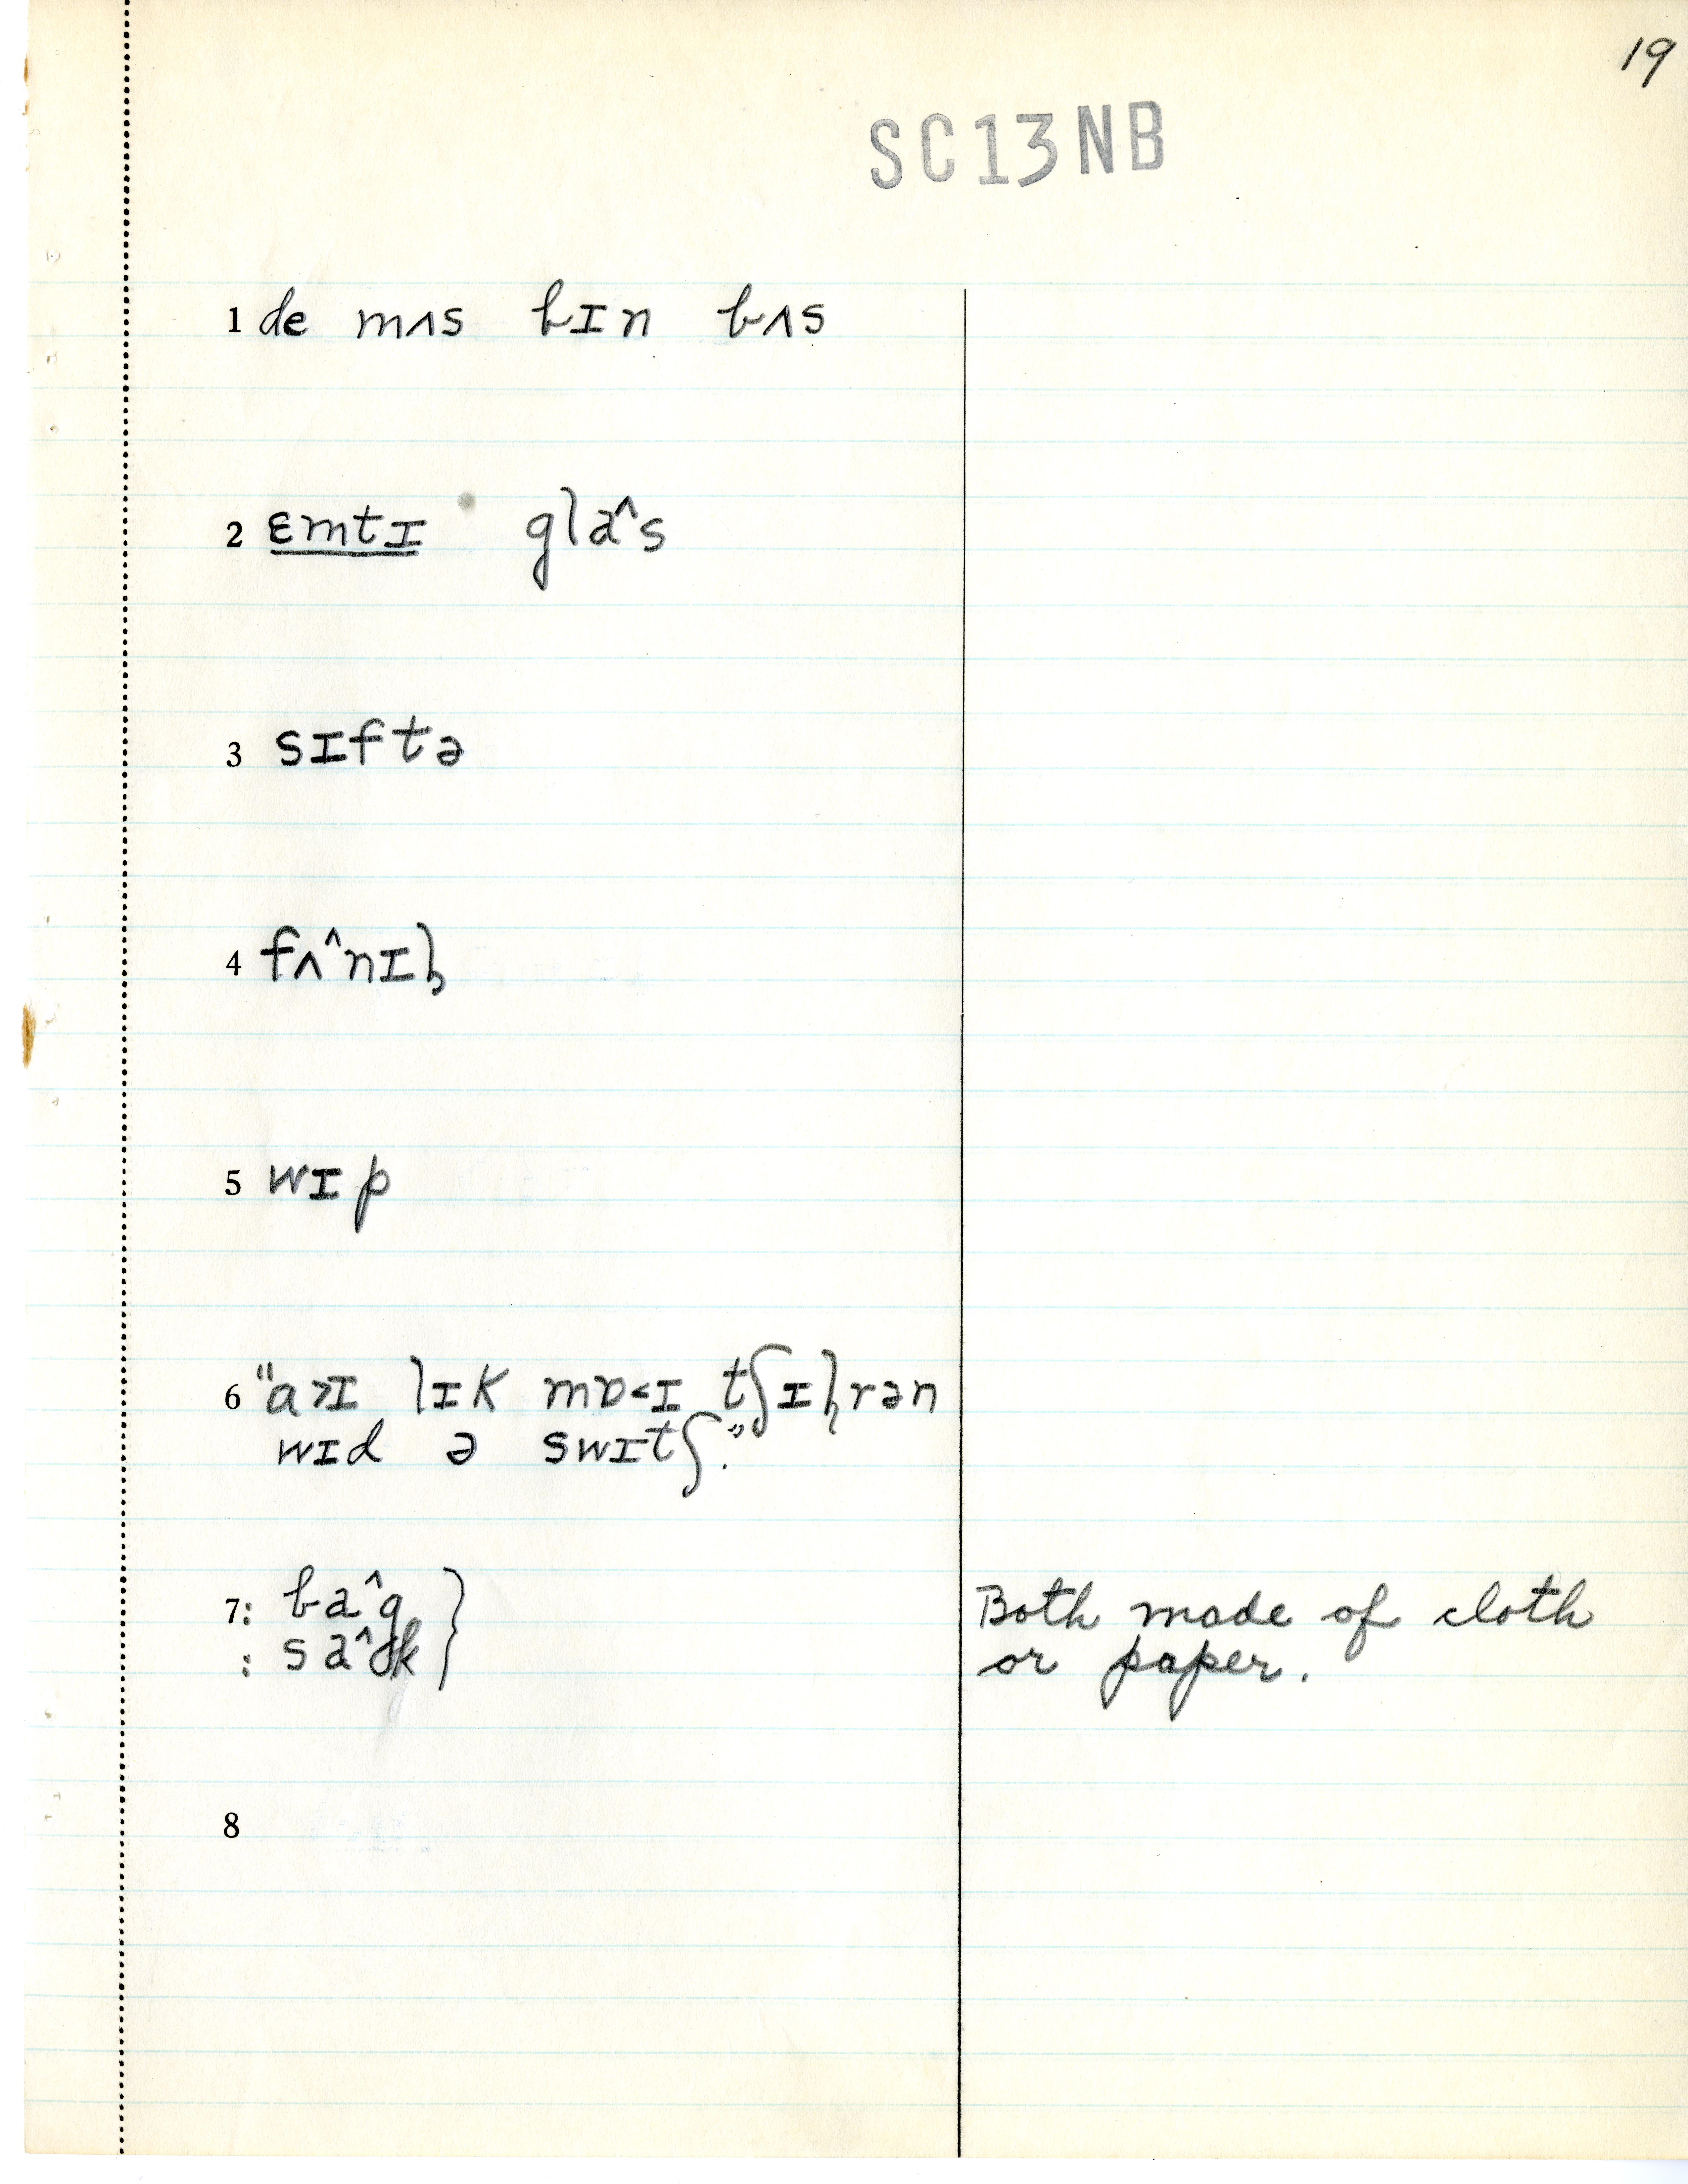 19
SC13NB
1 de mʌs bɪn bʌs
2 ɛmtɪ gla^s
3 sɪftə
4 fʌ^nɪɫ
5 wɪp
6 "a>ɪ lɪk mɒ<ɪ tʃɪɫrən
wɪd ə swɪtʃ."
7: ba^g } Both made of cloth
: sa^k or paper.
8